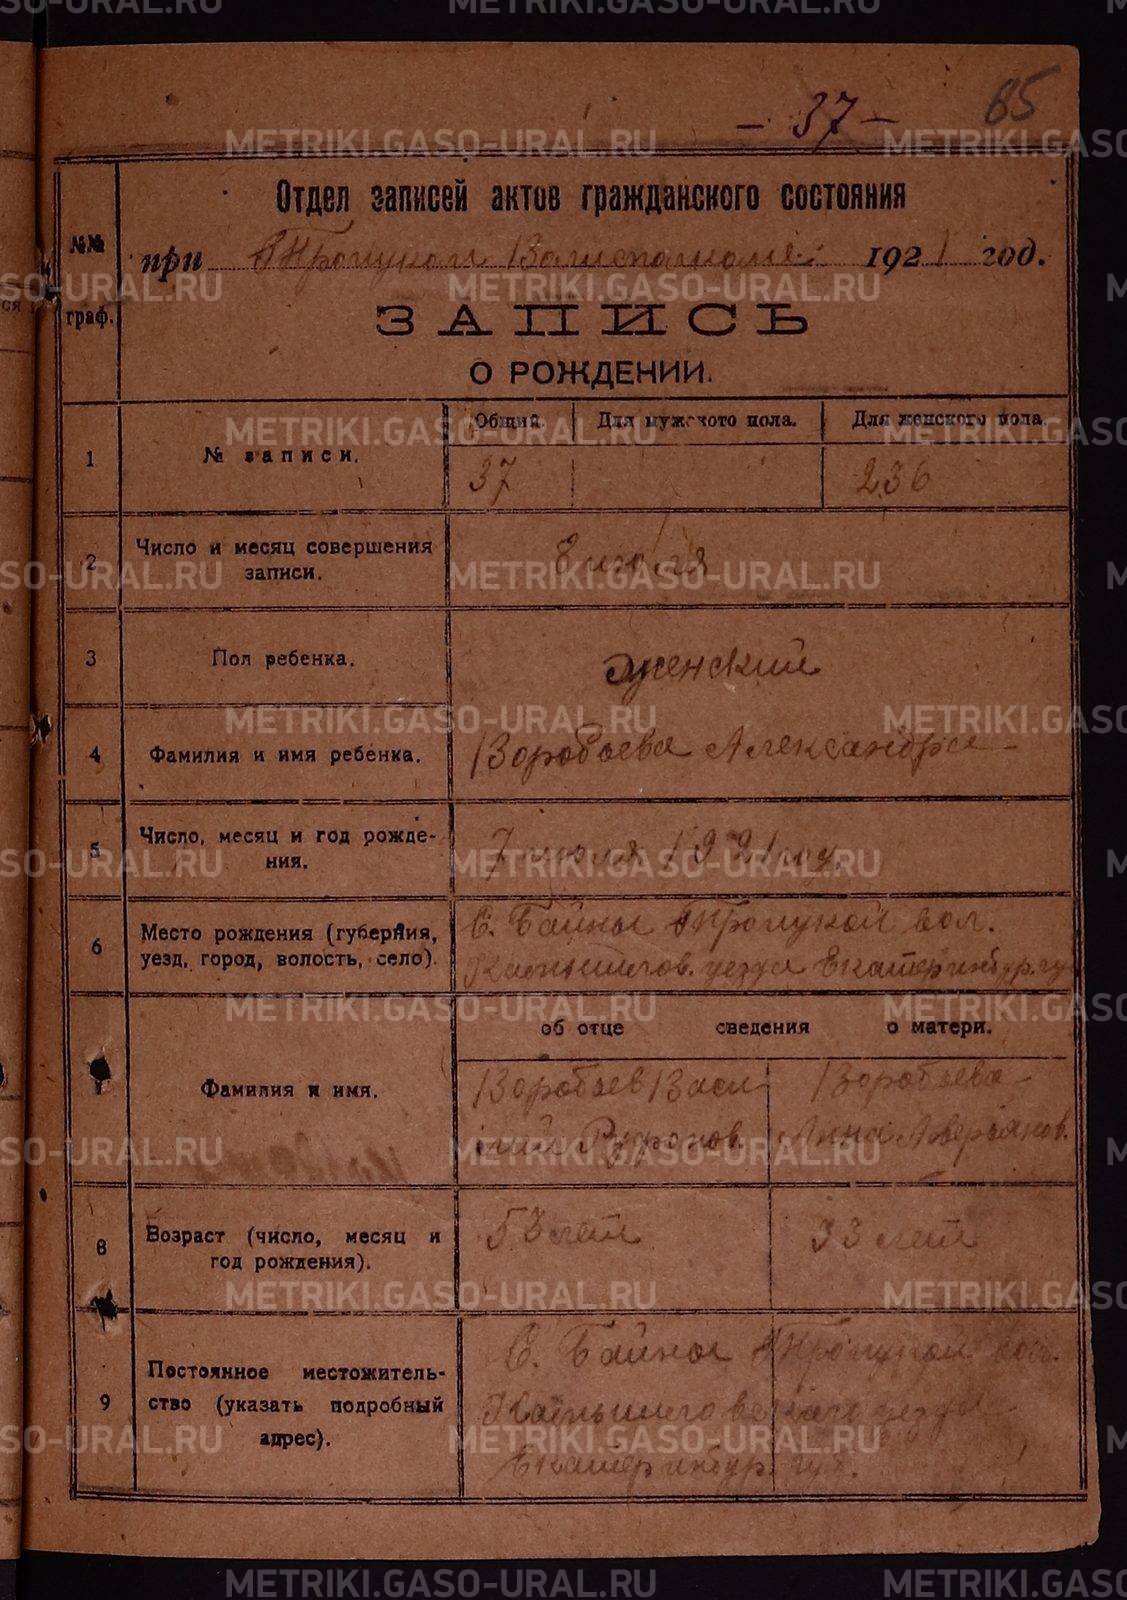 - 37 -
65
Отдел записей актов гражданского состояния
№№ граф.
при Троицком Волисполкоме 1921 год.
ЗАПИСЬ
О РОЖДЕНИИ.
1
№ записи.
Общий.
Для мужского пола.
Для женского пола.
37
236
2
Число и месяц совершения
записи.
8 июля
3
Пол ребенка.
женский
4
Фамилия и имя ребенка.
Воробьева Александра
5
Число, месяц и год рожде-
ния.
7 июля 1921 году.
6
Место рождения (губерния,
уезд, город, волость, село).
С. Байны Троицкой вол.
Камышлов. уезда Екатеринбур. гу
об отце сведения о матери.
Фамилия и имя.
Воробьев Васи
лий
Воробьева
Анна Аверьянов.
8
Возраст (число, месяц и
год рождения).
53 лет
33 лет
9
Постоянное местожитель-
ство (указать подробный
адрес).
С. Байны Троицкой вол.
Камышловского уезда
Екатеринбур. губ.
METRIKI.GASO-URAL.RU